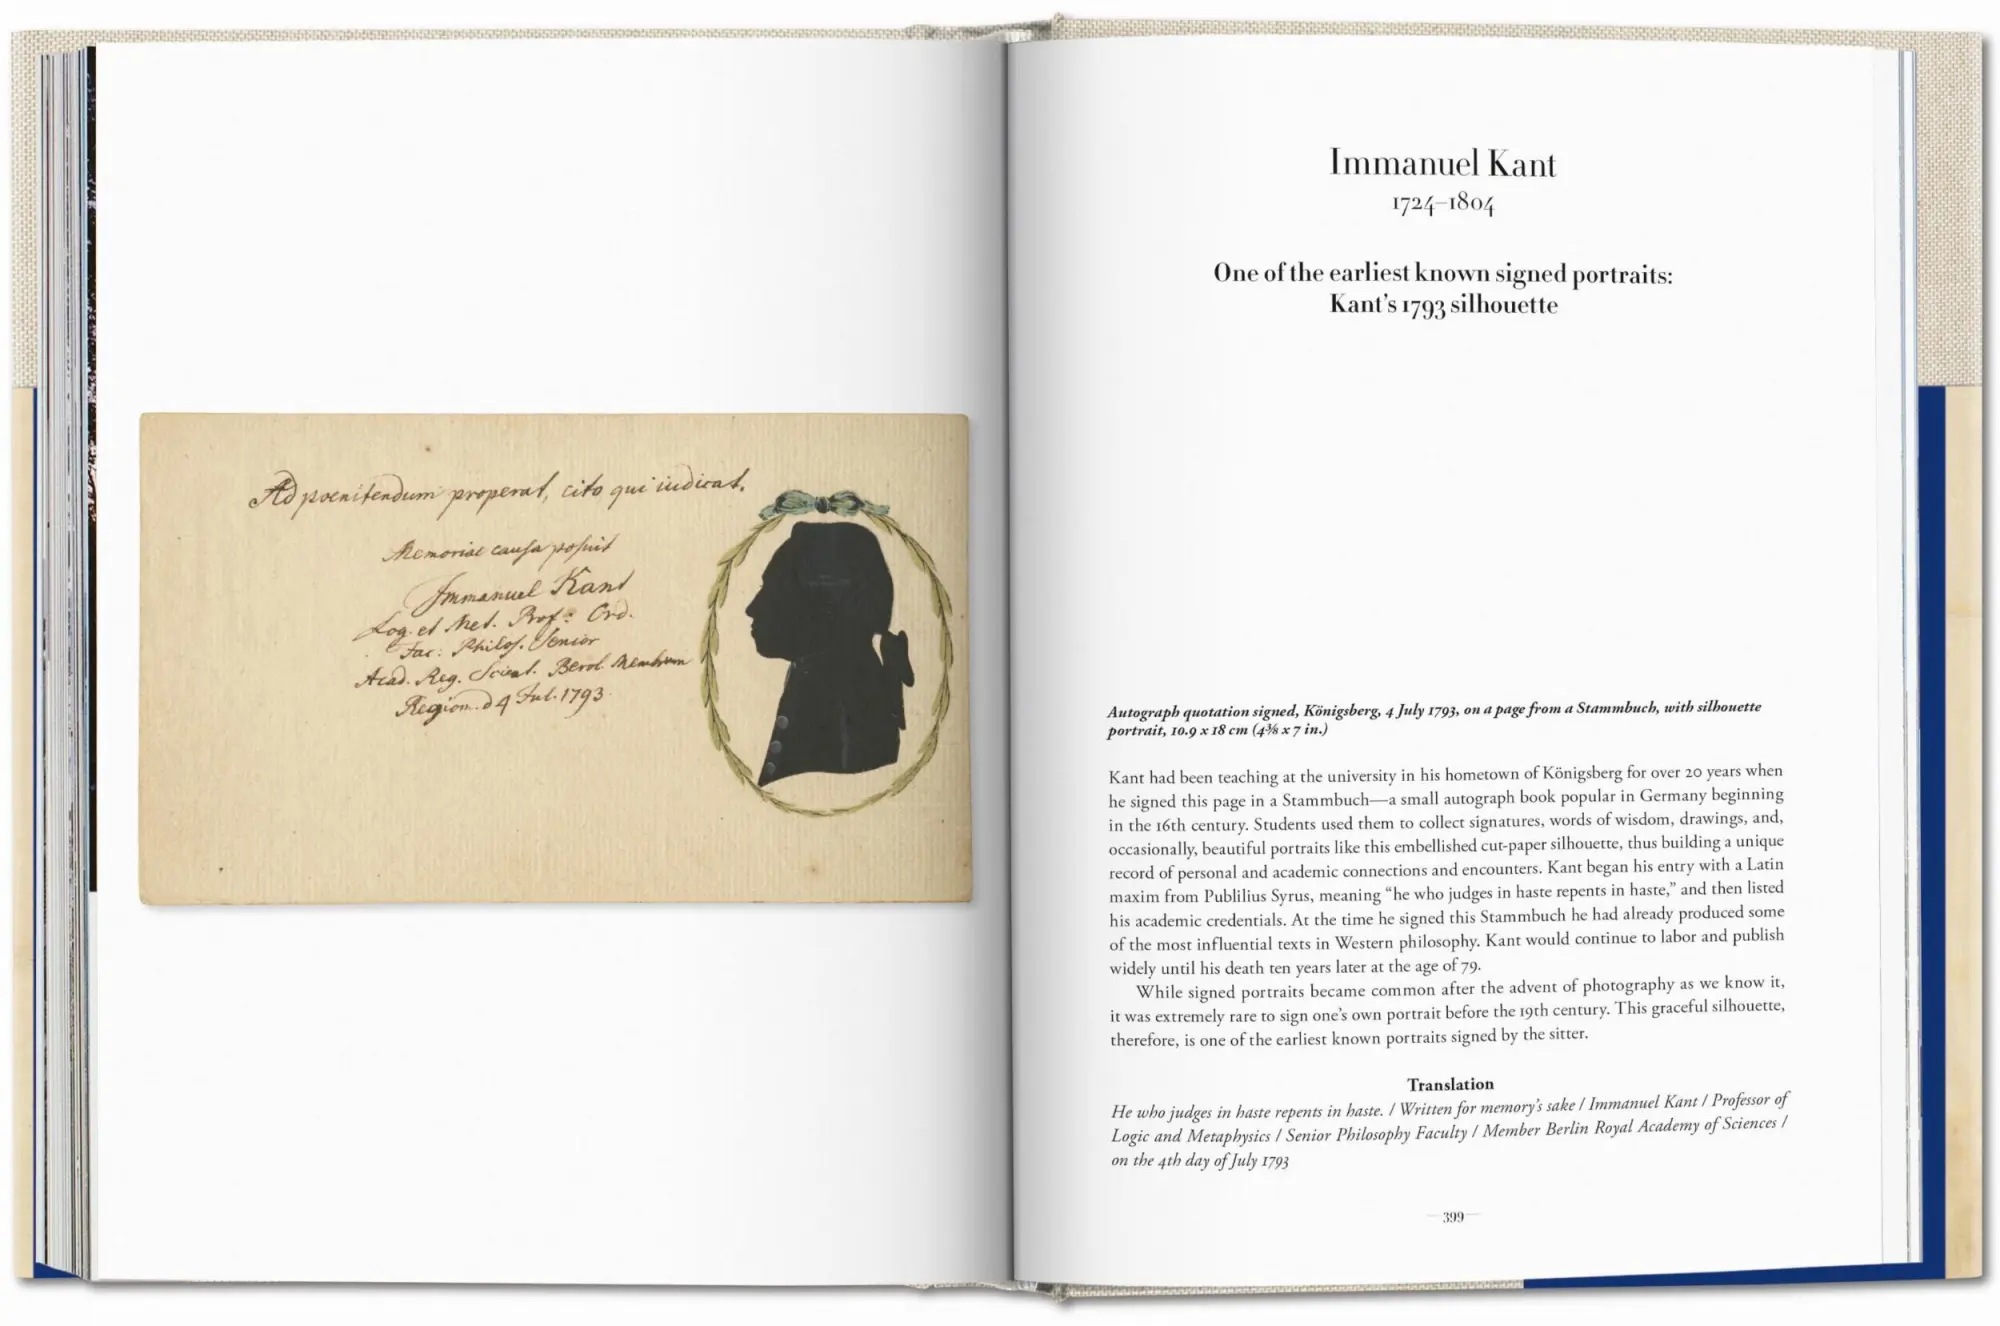 Ad poenitendum properat, cito qui iudicat.
Memoriae causa posuit
Immanuel Kant
Log. et Met. Prof: Ord.
Fac: Philos. Senior
Acad. Reg. Scient. Berol. Membrum
Regiom. d 4 Jul. 1793.
Immanuel Kant
1724–1804
One of the earliest known signed portraits:
Kant’s 1793 silhouette
Autograph quotation signed, Königsberg, 4 July 1793, on a page from a Stammbuch, with silhouette
portrait, 10.9 x 18 cm (4⅜ x 7 in.)
Kant had been teaching at the university in his hometown of Königsberg for over 20 years when
he signed this page in a Stammbuch—a small autograph book popular in Germany beginning
in the 16th century. Students used them to collect signatures, words of wisdom, drawings, and,
occasionally, beautiful portraits like this embellished cut-paper silhouette, thus building a unique
record of personal and academic connections and encounters. Kant began his entry with a Latin
maxim from Publilius Syrus, meaning “he who judges in haste repents in haste,” and then listed
his academic credentials. At the time he signed this Stammbuch he had already produced some
of the most influential texts in Western philosophy. Kant would continue to labor and publish
widely until his death ten years later at the age of 79.
While signed portraits became common after the advent of photography as we know it,
it was extremely rare to sign one’s own portrait before the 19th century. This graceful silhouette,
therefore, is one of the earliest known portraits signed by the sitter.
Translation
He who judges in haste repents in haste. / Written for memory’s sake / Immanuel Kant / Professor of
Logic and Metaphysics / Senior Philosophy Faculty / Member Berlin Royal Academy of Sciences /
on the 4th day of July 1793
399